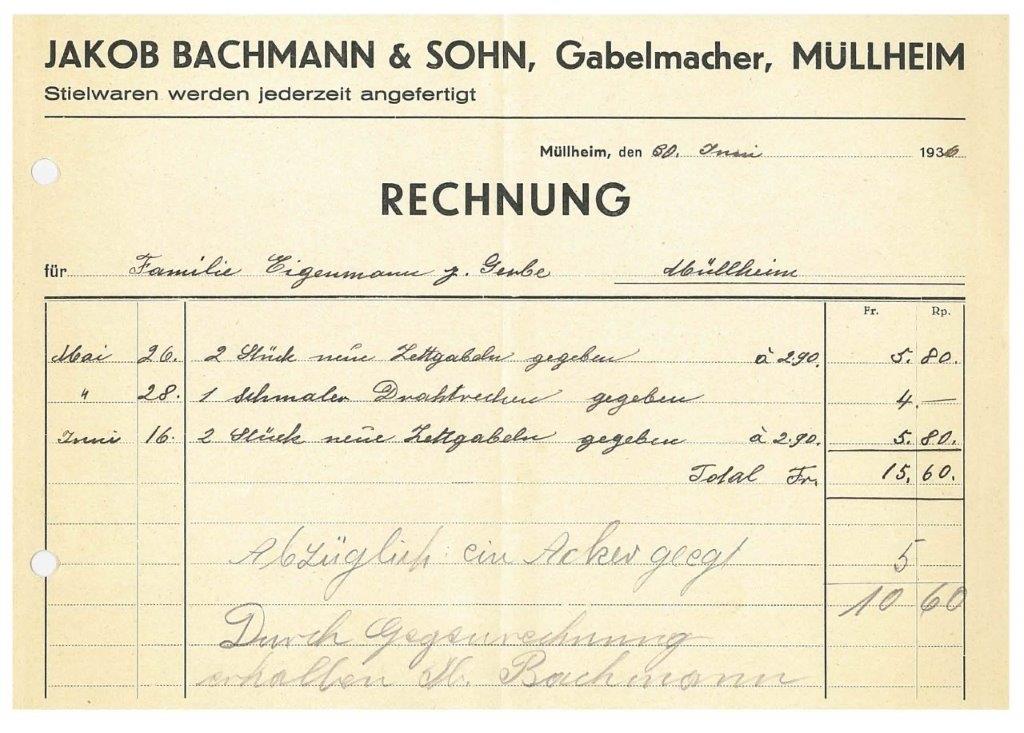 JAKOB BACHMANN & SOHN, Gabelmacher, MÜLLHEIM
Stielwaren werden jederzeit angefertigt
Müllheim, den 30. Juni 1936
RECHNUNG
für Familie Eigenmann z. Gerbe Müllheim
Fr. Rp.
Mai 26. 2 Stück neue Zettgabeln gegeben à 2.90. 5. 80.
" 28. 1 schmaler Drahtrechen gegeben 4. —
Juni 16. 2 Stück neue Zettgabeln gegeben à 2.90. 5. 80.
Total Fr. 15. 60.
Abzüglich ein Acker geegt 5
10 60
Durch Gegenrechnung
erhalten Bachmann